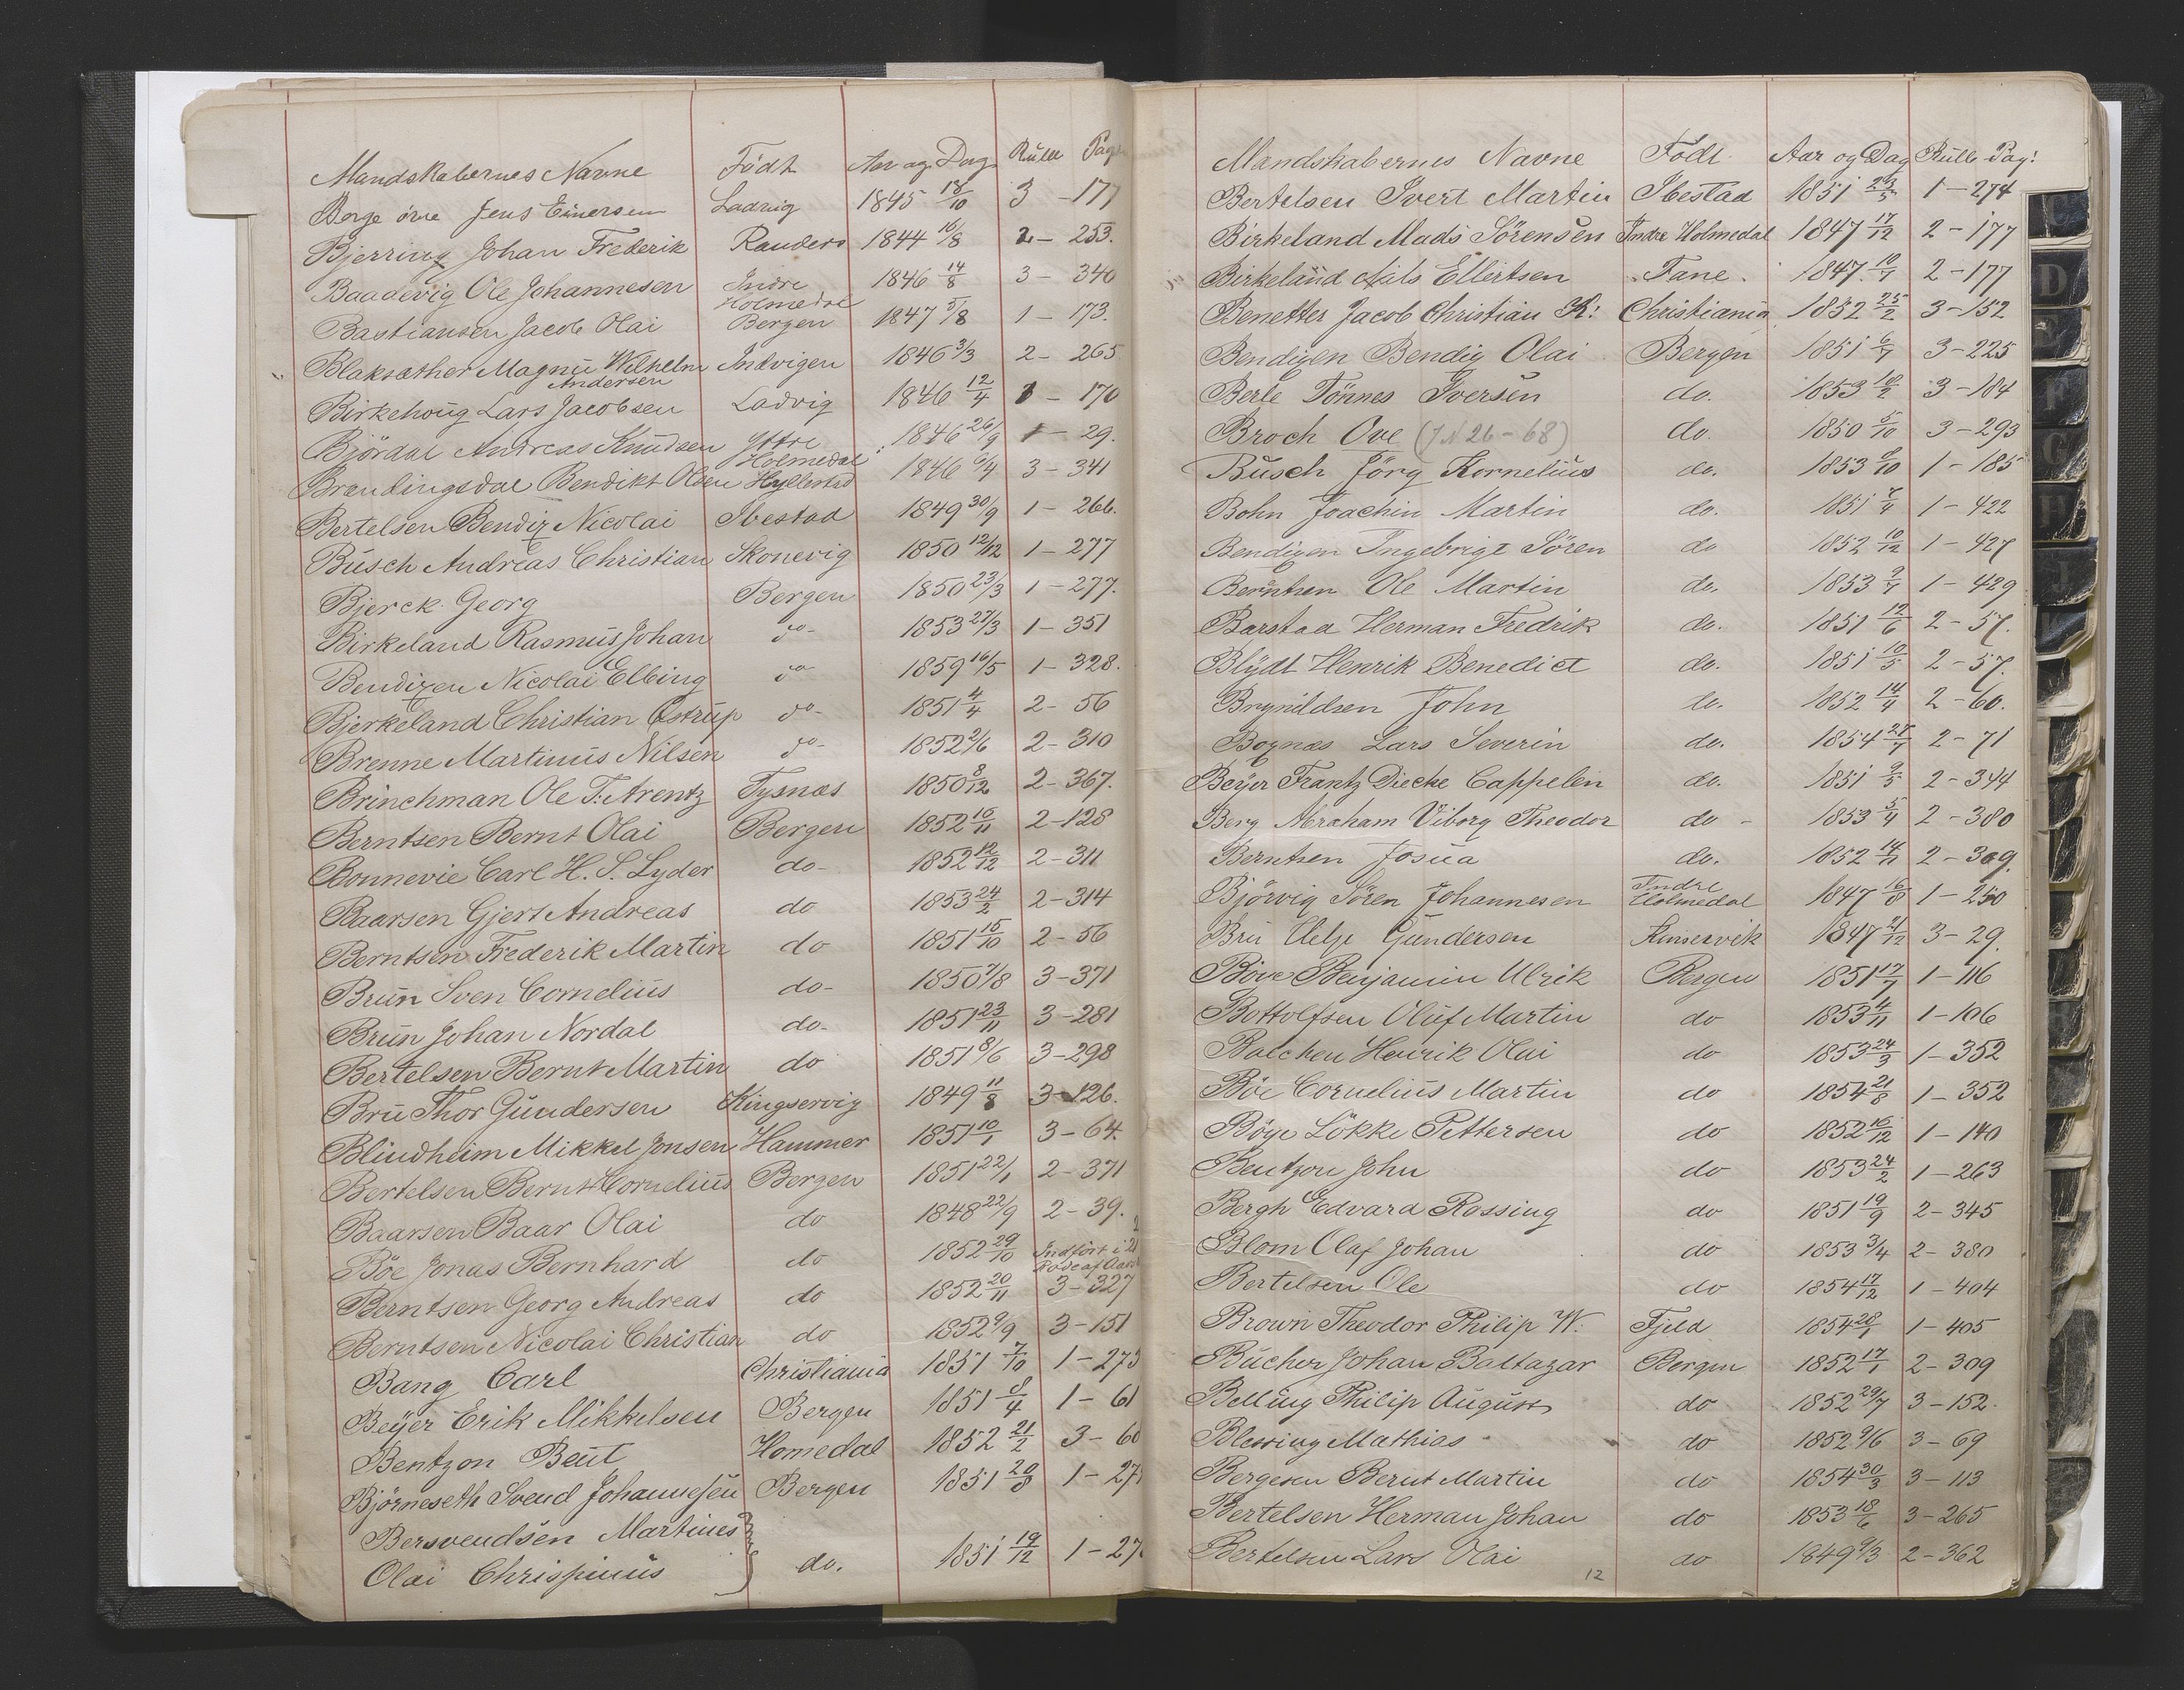 Mandskabernes Navne Födt Aar og Dag Rulle Pag
Borge örne Jens Einersen Ladvig 1845 18/10 3 - 177
Bjerring Johan Frederik Randers 1844 16/8 2 - 253.
Baadevig Ole Johannesen Indre Holmedal 1846 14/8 3 - 340
Bastiansen Jacob Olai Bergen 1847 5/8 1 - 173.
Blaksæther Magnü Wilhelm Andersen Indvigen 1846 3/3 2 - 265
Birkehoüg Lars Jacobsen Ladvig 1846 12/4 1 - 170
Björdal Andreas Knudsen Yttre Holmedal 1846 26/9 1 - 29.
Brandingsdal Bendikt Olsen Hyllestad 1846 6/4 3 - 341
Bertelsen Bendix Nicolai Ibestad 1849 30/9 1 - 266.
Büsch Andreas Christian Skonevig 1850 12/12 1 - 277
Bjerck Georg Bergen 1850 23/3 1 - 277.
Birkeland Rasmüs Johan do- 1853 27/3 1 - 351
Bendixen Nicolai Elbing do 1859 16/5 1 - 328.
Bjerkeland Christian Östrüp do- 1851 4/4 2 - 56
Brenne Martinüs Nilsen do- 1852 2/6 2 - 310
Brinchman Ole T: Arentz Tysnæs 1850 8/12 2 - 367.
Berntsen Bernt Olai Bergen 1852 16/11 2 - 128
Bonnevie Carl H. S. Lyder do- 1852 12/12 2 - 311
Baarsen Gjert Andreas do 1853 24/2 2 - 314
Berntsen Frederik Martin do 1851 15/10 2 - 56
Brün Sven Cornelius do- 1850 7/8 3 - 371
Brün Johan Nordal do- 1851 23/11 3 - 281
Bertelsen Bernt Martin do 1851 8/6 3 - 298
Brü Thor Gündersen Kingservig 1849 11/8 3 - 126.
Blindheim Mikkel Jonsen Hammer 1851 10/1 3 - 64.
Bertelsen Bernt Cornelius Bergen 1851 22/1 2 - 371
Baarsen Baar Olai do 1848 22/9 2 - 39.
Böe Jonas Bernhard do 1852 29/10 Indfört i 2
Rode af Aars
Berntsen Georg Andreas do 1852 20/11 3 - 327
Berntsen Nicolai Christian do 1852 9/9 3 - 151
Bang Carl Christiania 1851 7/10 1 - 273
Beÿer Erik Mikkelsen Bergen 1851 8/4 1 - 61
Bentzon Beüt Homedal 1852 21/2 3 - 60
Björneseth Svend Johannesen Bergen 1851 20/8 1 - 27
Bersvendsen Martines
Olai Chrispinüs do. 1851 19/12 1 - 27
Mandskabernes Navne Födt Aar og Dag Rulle Pag:
Bertelsen Ivert Martin Ibestad 1851 23/5 1 - 274
Birkeland Mads Sörensen Indre Holmedal 1847 17/12 2 - 177
Birkeland Nils Ellertsen Fane. 1847 10/7 2 - 177
Benetter Jacob Christian K: Christiania 1852 25/2 3 - 152
Bendixen Bendix Olai Bergen 1851 6/7 3 - 225
Berle Tönnes Iversen do. 1853 18/2 3 - 184
Broch Ove (IN 26-68) do. 1850 5/10 3 - 293
Büsch Jörg Kornelius do. 1853 8/10 1 - 185
Bohn Joachin Martin do. 1851 7/4 1 - 422
Bendixen Ingebrigt Sören do 1852 10/12 1 - 427
Berntsen Ole Martin do. 1853 9/4 1 - 429
Barstad Herman Fredrik do. 1851 12/6 2 - 57.
Blÿdt Henrik Benedict do. 1851 10/5 2 - 57.
Brynildsen John do. 1852 14/4 2 - 60.
Bognæs Lars Severin do. 1854 28/7 2 - 71
Beÿer Frantz Diecke Cappelen do. 1851 9/5 2 - 344
Berg Abraham Viborg Theodor do - 1853 5/4 2 - 380
Berntsen Josüa do. 1852 14/11 2 - 309.
Bjørvig Sören Johannesen Indre Holmedal 1847 16/8 1 - 250
Brü Helje Gündersen Kinservik 1847 21/12 3 - 29.
Böve Benjamin Ulrik Bergen 1851 17/7 1 - 116
Bottolfsen Olüf Martin do 1853 4/11 1 - 106
Balchen Henrik Olai do 1853 24/3 1 - 352
Böe Cornelius Martin do 1854 21/8 1 - 352
Böge Lökke Pettersen do 1852 16/12 1 - 140
Bentzon John do 1853 24/2 1 - 263
Bergh Edvard Rossing do 1851 19/9 2 - 345
Blom Olaf Johan do 1853 3/4 2 - 380
Bertelsen Ole do 1854 17/12 1 - 404
Brown Theodor Philip W: Fjeld 1854 28/1 1 - 405
Bücher Johan Baltazar Bergen 1852 17/1 2 - 309
Belling Philip August do 1852 29/7 3 - 152.
Blessing Mathias do 1852 9/6 3 - 69
Bergesen Bernt Martin do 1854 30/3 3 - 113
Bertelsen Herman Johan do 1853 18/6 3 - 265
Bertelsen Lars Olai do 1849 9/3 2 - 362
12
D
F
G
H
J
K